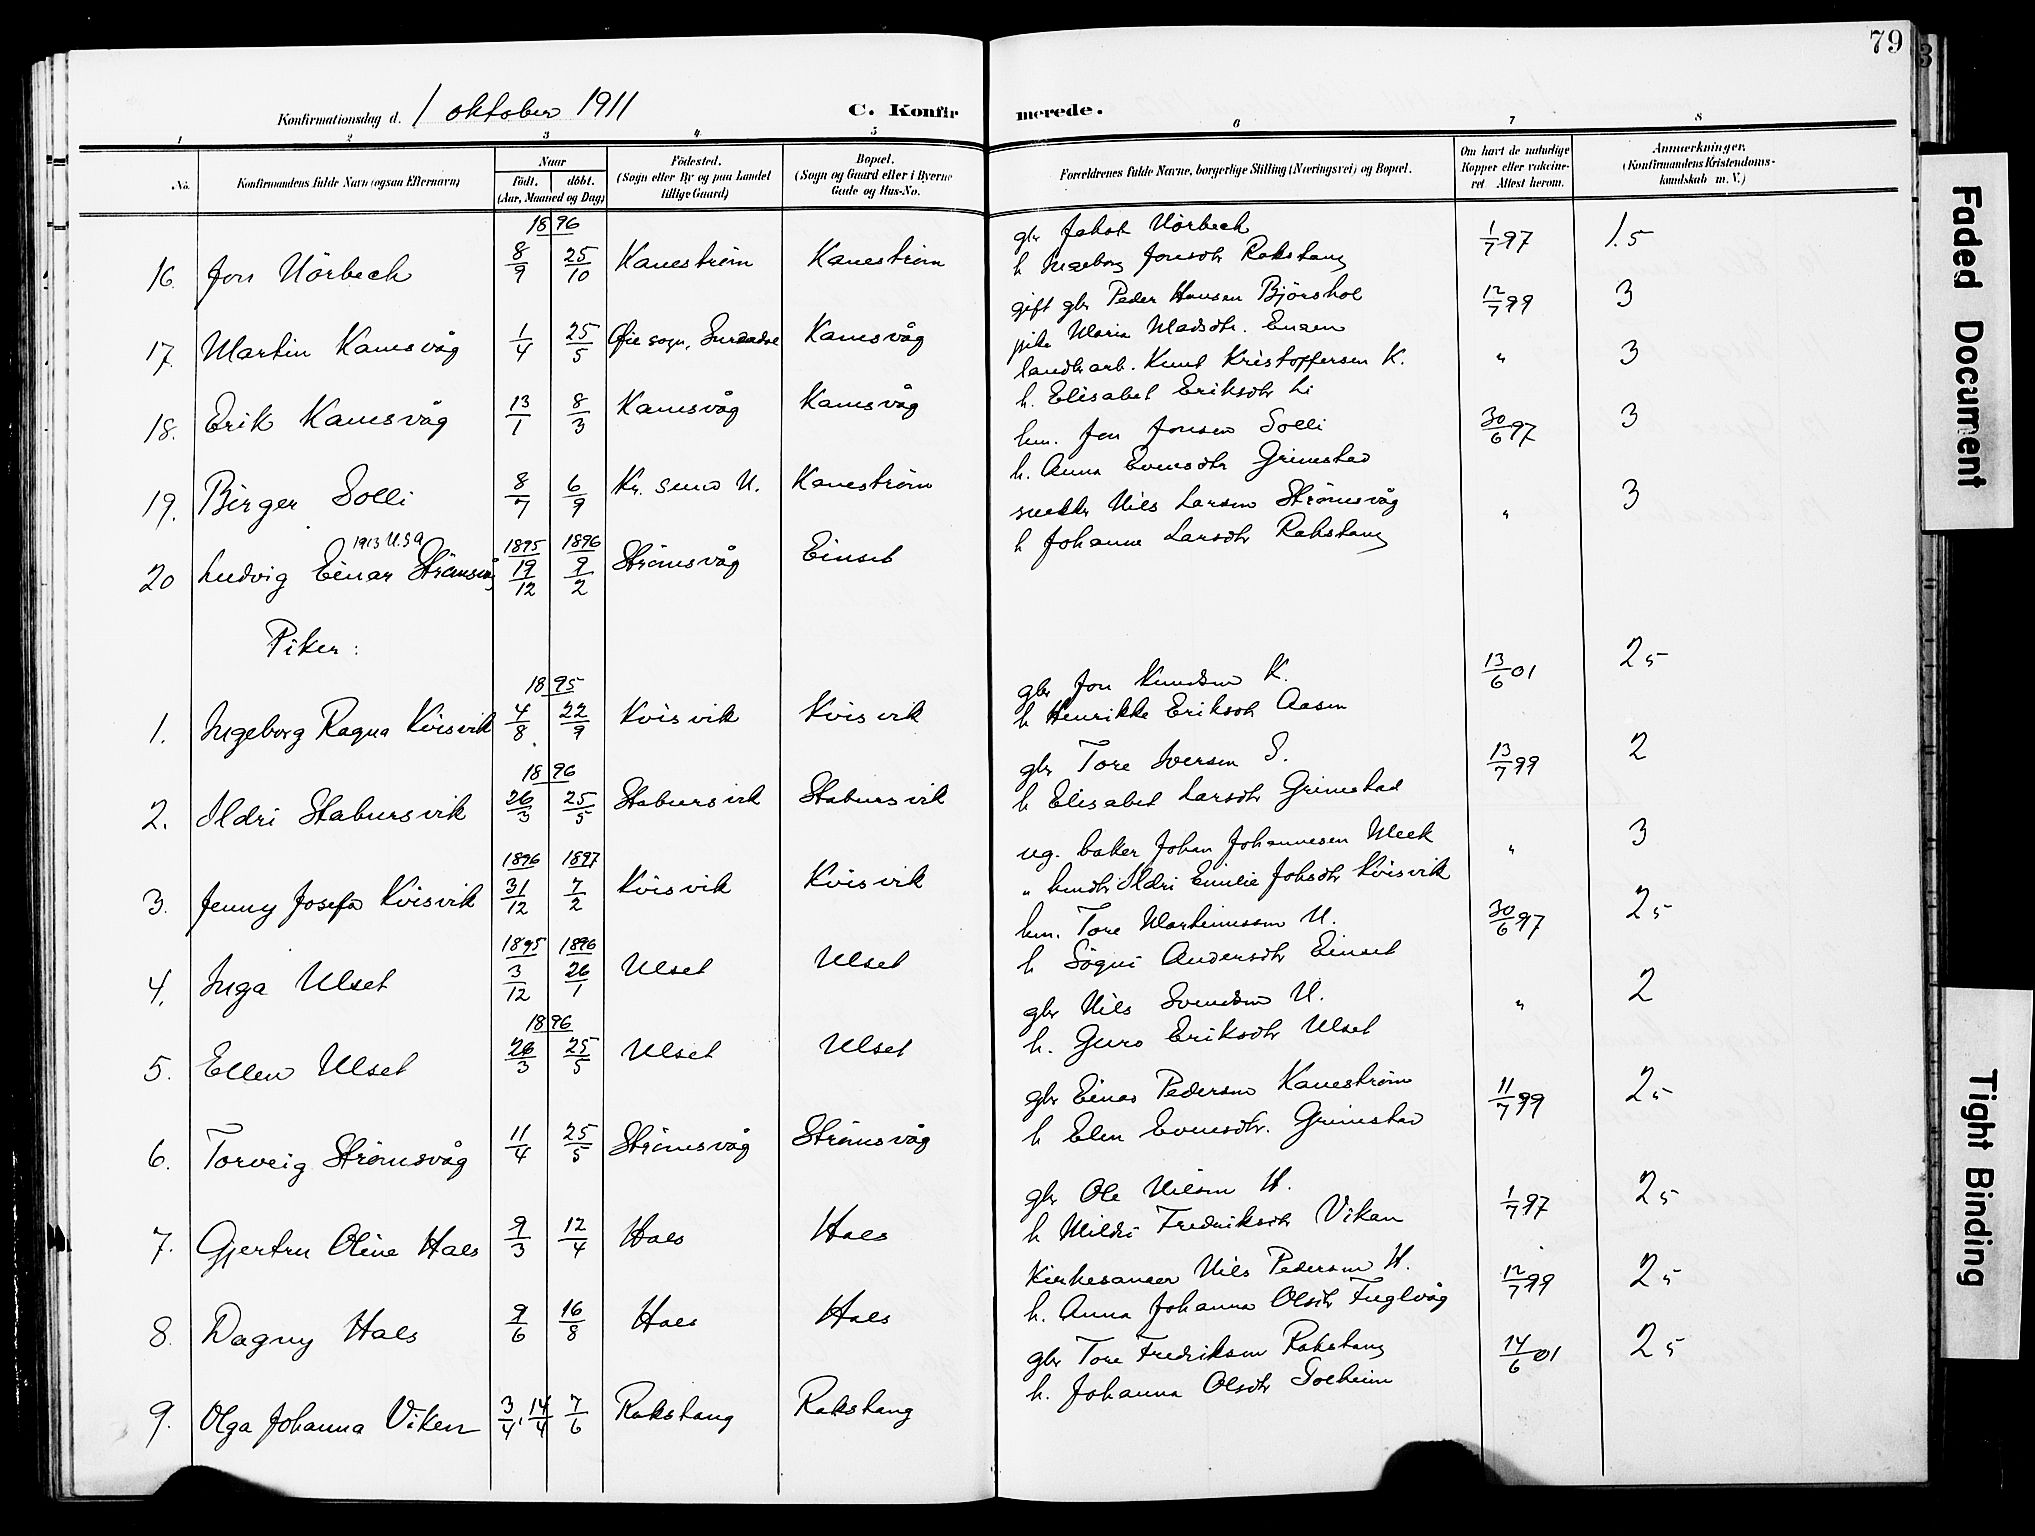 79
Konfirmationsdag d. 1 oktober 1911 C. Konfirmerede.
1 2 3 4 5 6 7 8
No. Konfirmandens fulde Navn (ogsaa Efternavn) Naar født. døbt. (Aar, Maaned og Dag) Fødested. (Sogn eller By og paa Landet tillige Gaard) Bopæl. (Sogn og Gaard eller i Byerne Gade og Hus-No. Forældrenes fulde Navne, borgerlige Stilling (Næringsvei) og Bopæl. Om havt de naturlige Kopper eller vakcineret Attest herom. Anmerkninger. (Konfirmandens Kristendomskundskab m. V.)
1896
16. Jon Nörbech 8/9 25/10 Kanestrøm Kanestrøm gbr Jakob Nörbech 1/7 97 1.5
h Ingeborg Jonsdtr Rakstang
17. Martin Kamsvåg 1/4 25/5 Øie sogn, Surendal Kamsvåg gift gbr Peder Hansen Bjørshol 12/7 99 3
pike Marie Madsdtr. Engen
18. Erik Kamsvåg 13/1 8/3 Kamsvåg Kamsvåg landbarb. Knut Kristoffersen K. " 3
h. Elisabet Eriksdtr Li
19. Birger Solli 8/7 6/9 Kr. sund N. Kanestrøm hm. Jon Jonsen Solli 30/6 97 3
h. Anna Evensdtr Grimstad
1913 USA 1895 1896
20 Ludvig Einar Strømsvåg 19/12 9/2 Strømsvåg Einset snekker Nils Larsen Strømsvåg " 3
h Johanne Larsdtr Rakstang
Piker:
1895
1. Ingeborg Ragna Kvisvik 4/8 22/9 Kvisvik Kvisvik gbr Jon Knudsen K. 13/6 01 25
h Henrikke Eriksdtr Aasen
1896
2. Ildri Stabursvik 26/3 25/5 Stabursvik Stabursvik gbr Tore Iversen S. 13/7 99 2
h Elisabet Larsdtr Grimstad
1896 1897
3. Jenny Josefa Kvisvik 31/12 7/2 Kvisvik Kvisvik ug. baker Johan Johannesen Meek " 3
" hmdtr Ildri Emilie Johsdtr Kvisvik
1895 1896
4. Inga Ulset 3/12 26/1 Ulset Ulset hm. Tore Martinussen U. 30/6 97 25
h Sögni Andersdtr Einset
1896
5. Ellen Ulset 26/3 25/5 Ulset Ulset gbr Nils Svendsen U. " 2
h. Guro Eriksdtr Ulset
6. Torveig Strømsvåg 11/4 25/5 Strømsvåg Strømsvåg gbr Einar Pedersen Kanestrøm 11/7 99 25
h Elen Evensdtr. Grimstad
7. Gjertru Oline Hals 9/3 12/4 Hals Hals gbr Ole Nilsen H. 1/7 97 25
h Mildri Fredriksdtr Vikan
8. Dagny Hals 9/6 16/8 Hals Hals Kirkesanger Nils Pedersen H. 12/7 99 25
h. Anna Johanna Olsdtr Fuglvåg
9. Olga Johanna Viken 3/4, 14/4 7/6 Rakstang Rakstang gbr Tore Fredriksen Rakstang 14/6 01 25
h. Johanna Olsdtr Solheim
Faded Document
Tight Binding